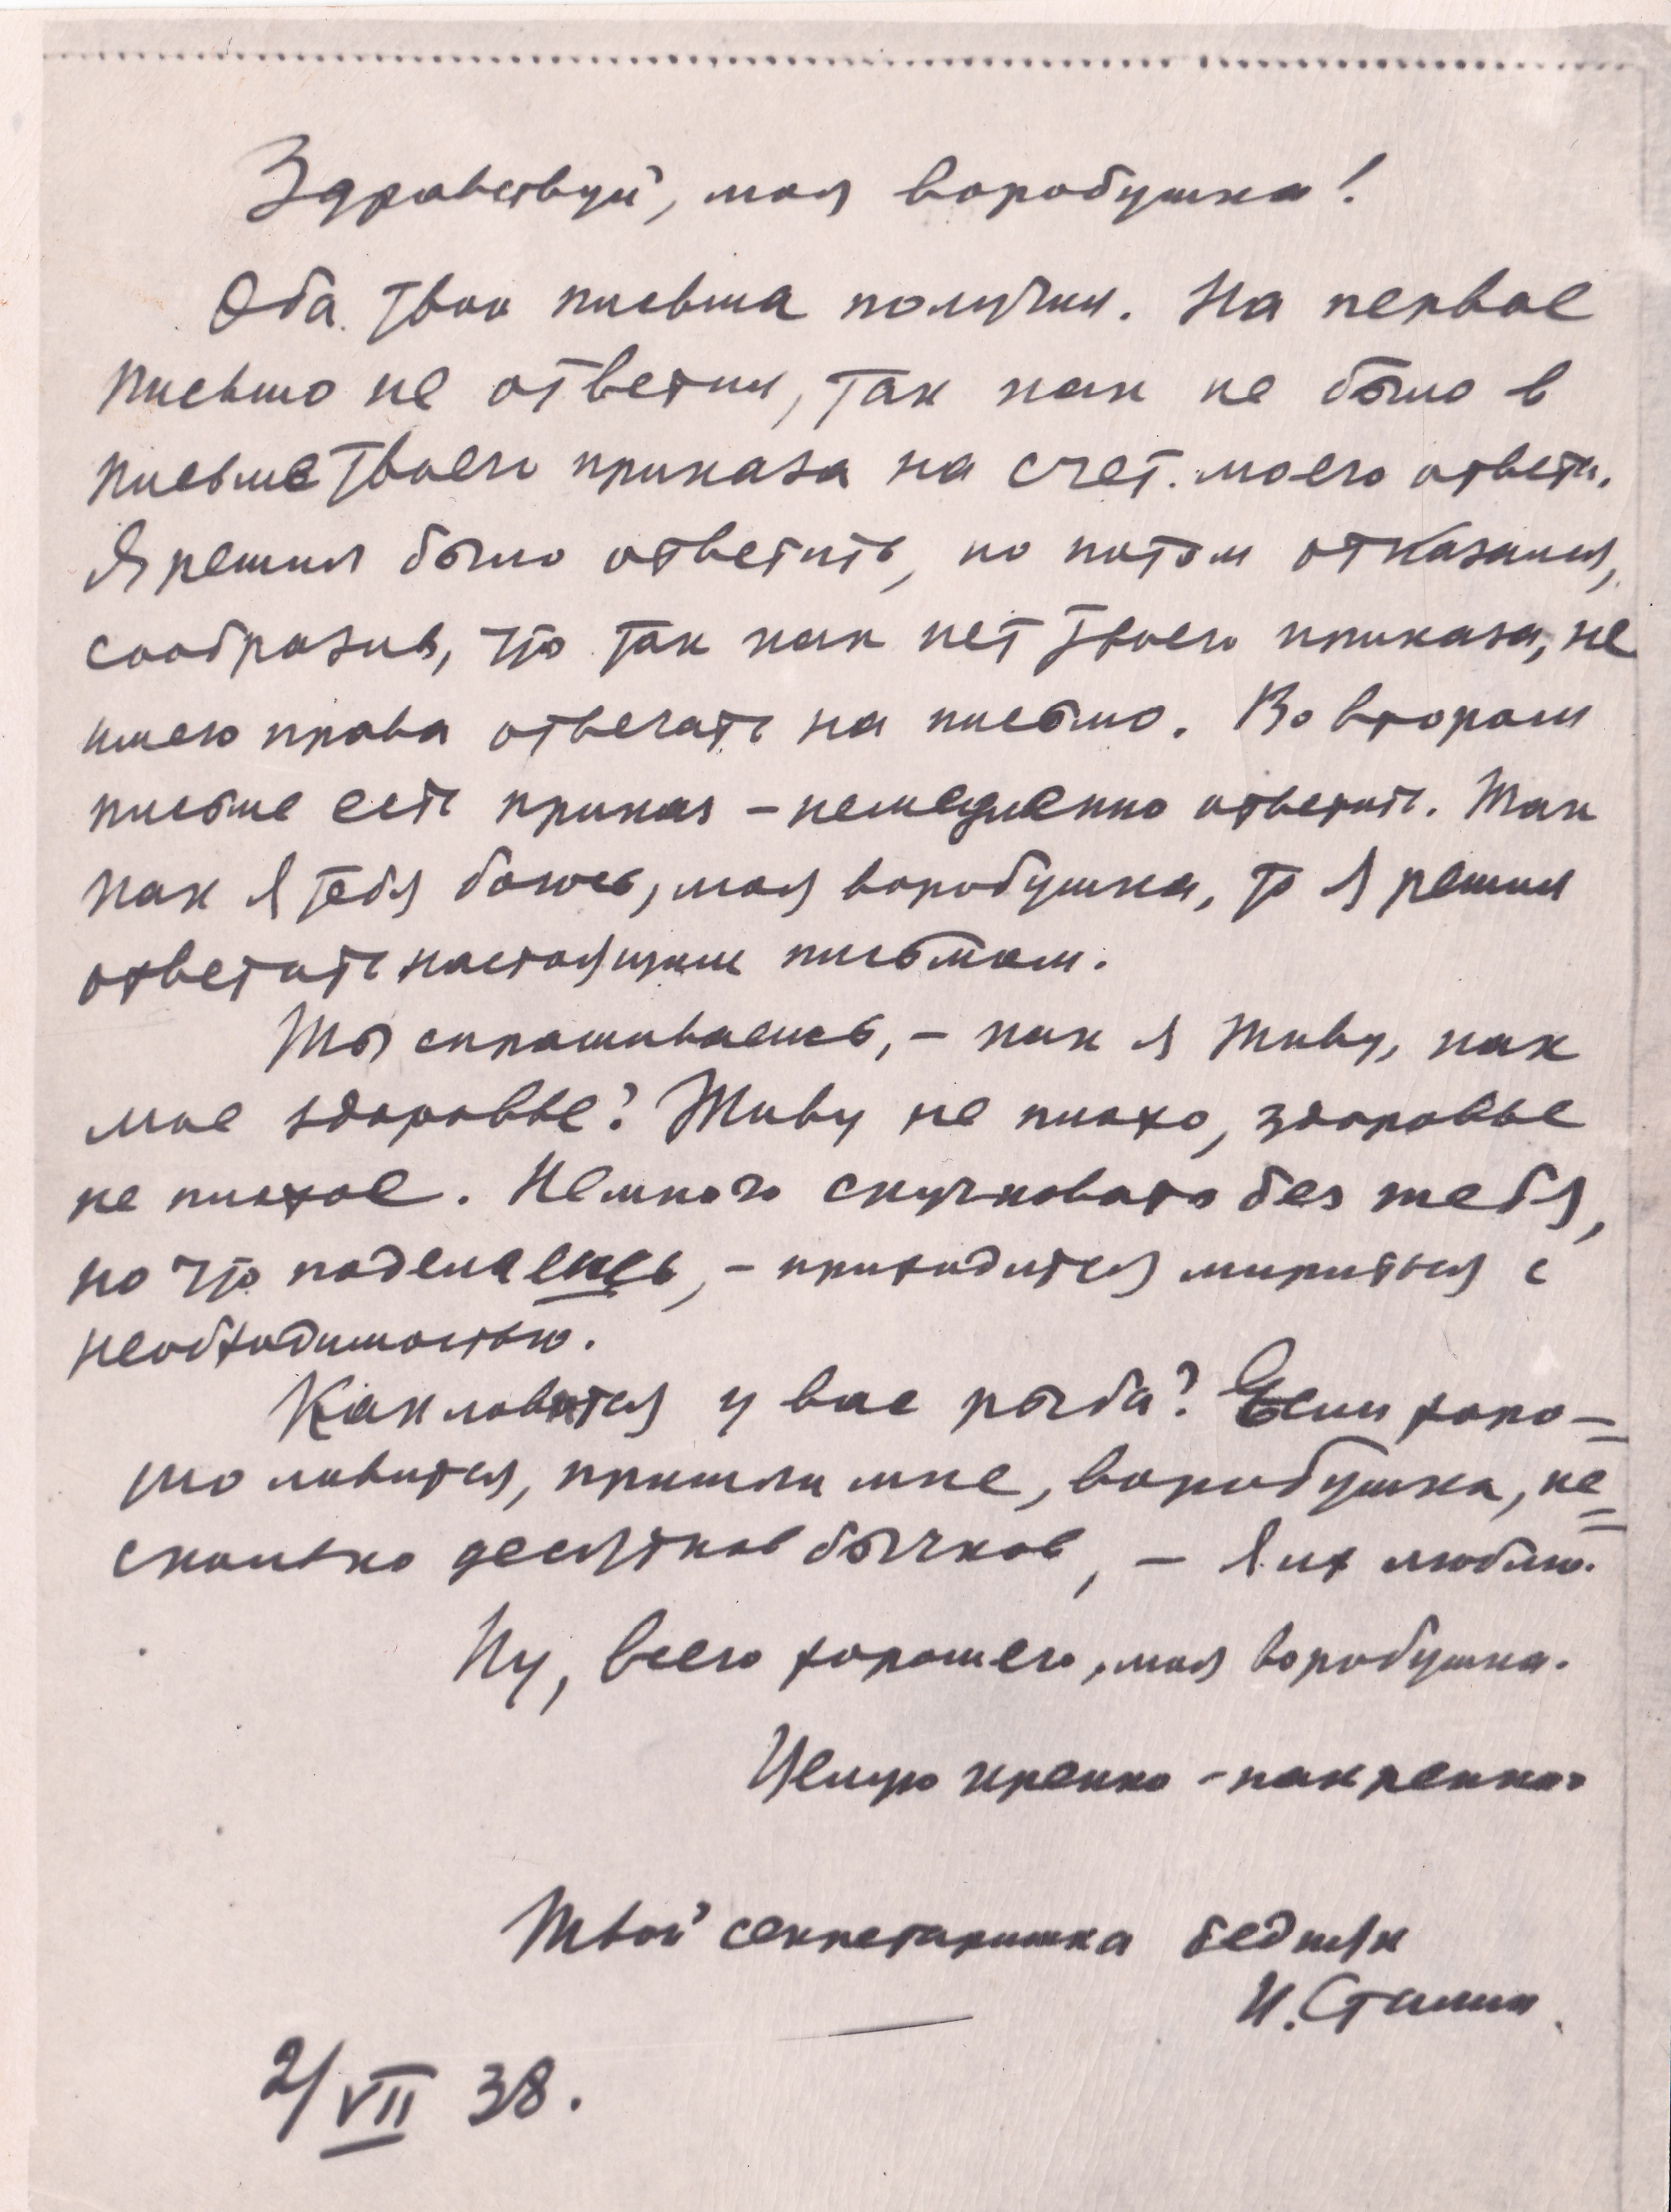 Здравствуй, моя воробушка!
Оба твои письма получил. На первое
письмо не ответил, так как не было в
письме твоего приказа на счет моего ответа.
Я решил было ответить, но потом отказался,
сообразив, что так как нет твоего приказа, не
имею права отвечать на письмо. Во втором
письме есть приказ – немедленно ответить. Так
как я тебя боюсь, моя воробушка, то я решил
ответить настоящим письмом.
Ты спрашиваешь, – как я живу, как
мое здоровье? Живу не плохо, здоровье
не плохое. Немного скучновато без тебя,
но что поделаешь, – приходится мириться с
необходимостью.
Как ловится у вас рыба? Если хоро=
шо ловится, пришли мне, воробушка, не=
сколько десятков бычков, – я их люблю.
Ну, всего хорошего, моя воробушка.
Целую крепко-накрепко.
Твой секретаришка бедняк
И. Сталин.
2/VII 38.